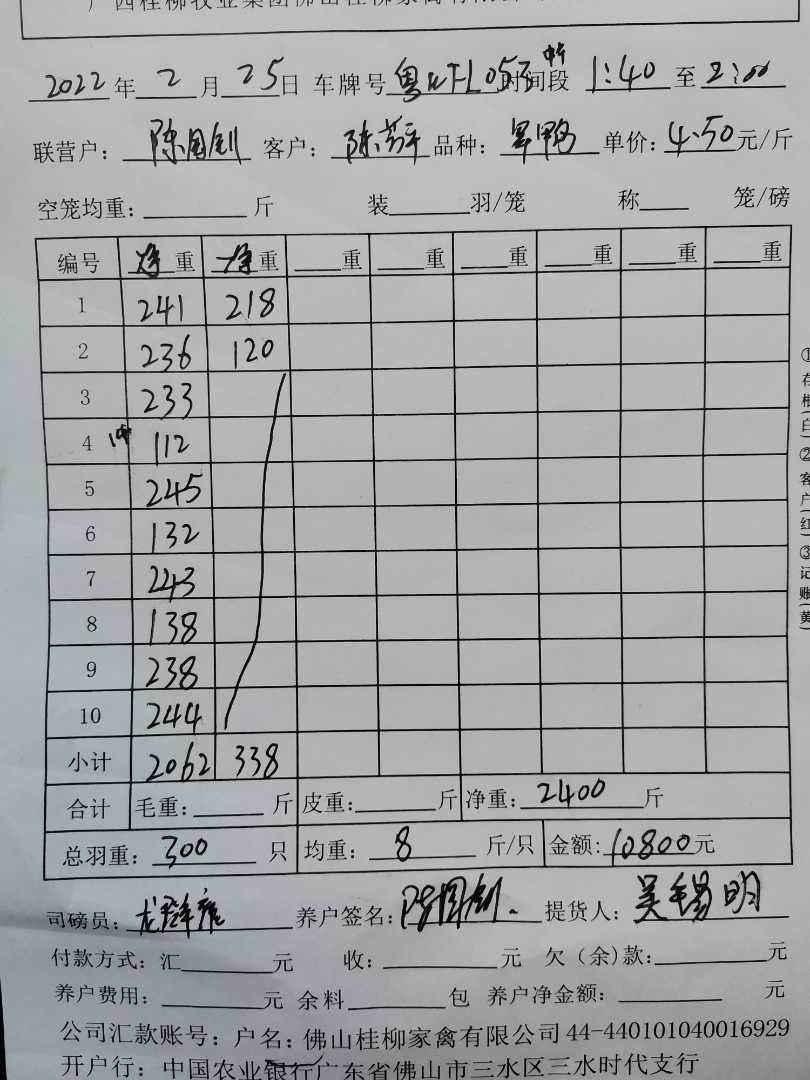 广西桂柳牧业集团佛山桂柳家禽有限公司
2022年2月25日 车牌号 粤 053 时间段 1:40至2:00
联营户：陈国钊 客户：陈 品种：鸭 单价：4.50元/斤
空笼均重：____斤 装____羽/笼 称____笼/磅
编号 净重 净重 ____重 ____重 ____重 ____重 ____重 ____重
1 241 218
2 236 120
3 233
4 112
5 245
6 132
7 243
8 138
9 238
10 244
小计 2062 338
合计 毛重：____斤 皮重：____斤 净重：2400斤
总羽重：300只 均重：8斤/只 金额：10800元
司磅员：龙 养户签名：陈国钊. 提货人：吴锡明
付款方式：汇____元 收：____元 欠（余）款：____元
养户费用：____元 余料____包 养户净金额：____元
公司汇款账号：户名：佛山桂柳家禽有限公司44-440101040016929
开户行：中国农业银行广东省佛山市三水区三水时代支行
①存根(白)②客户(红)③记账(黄)